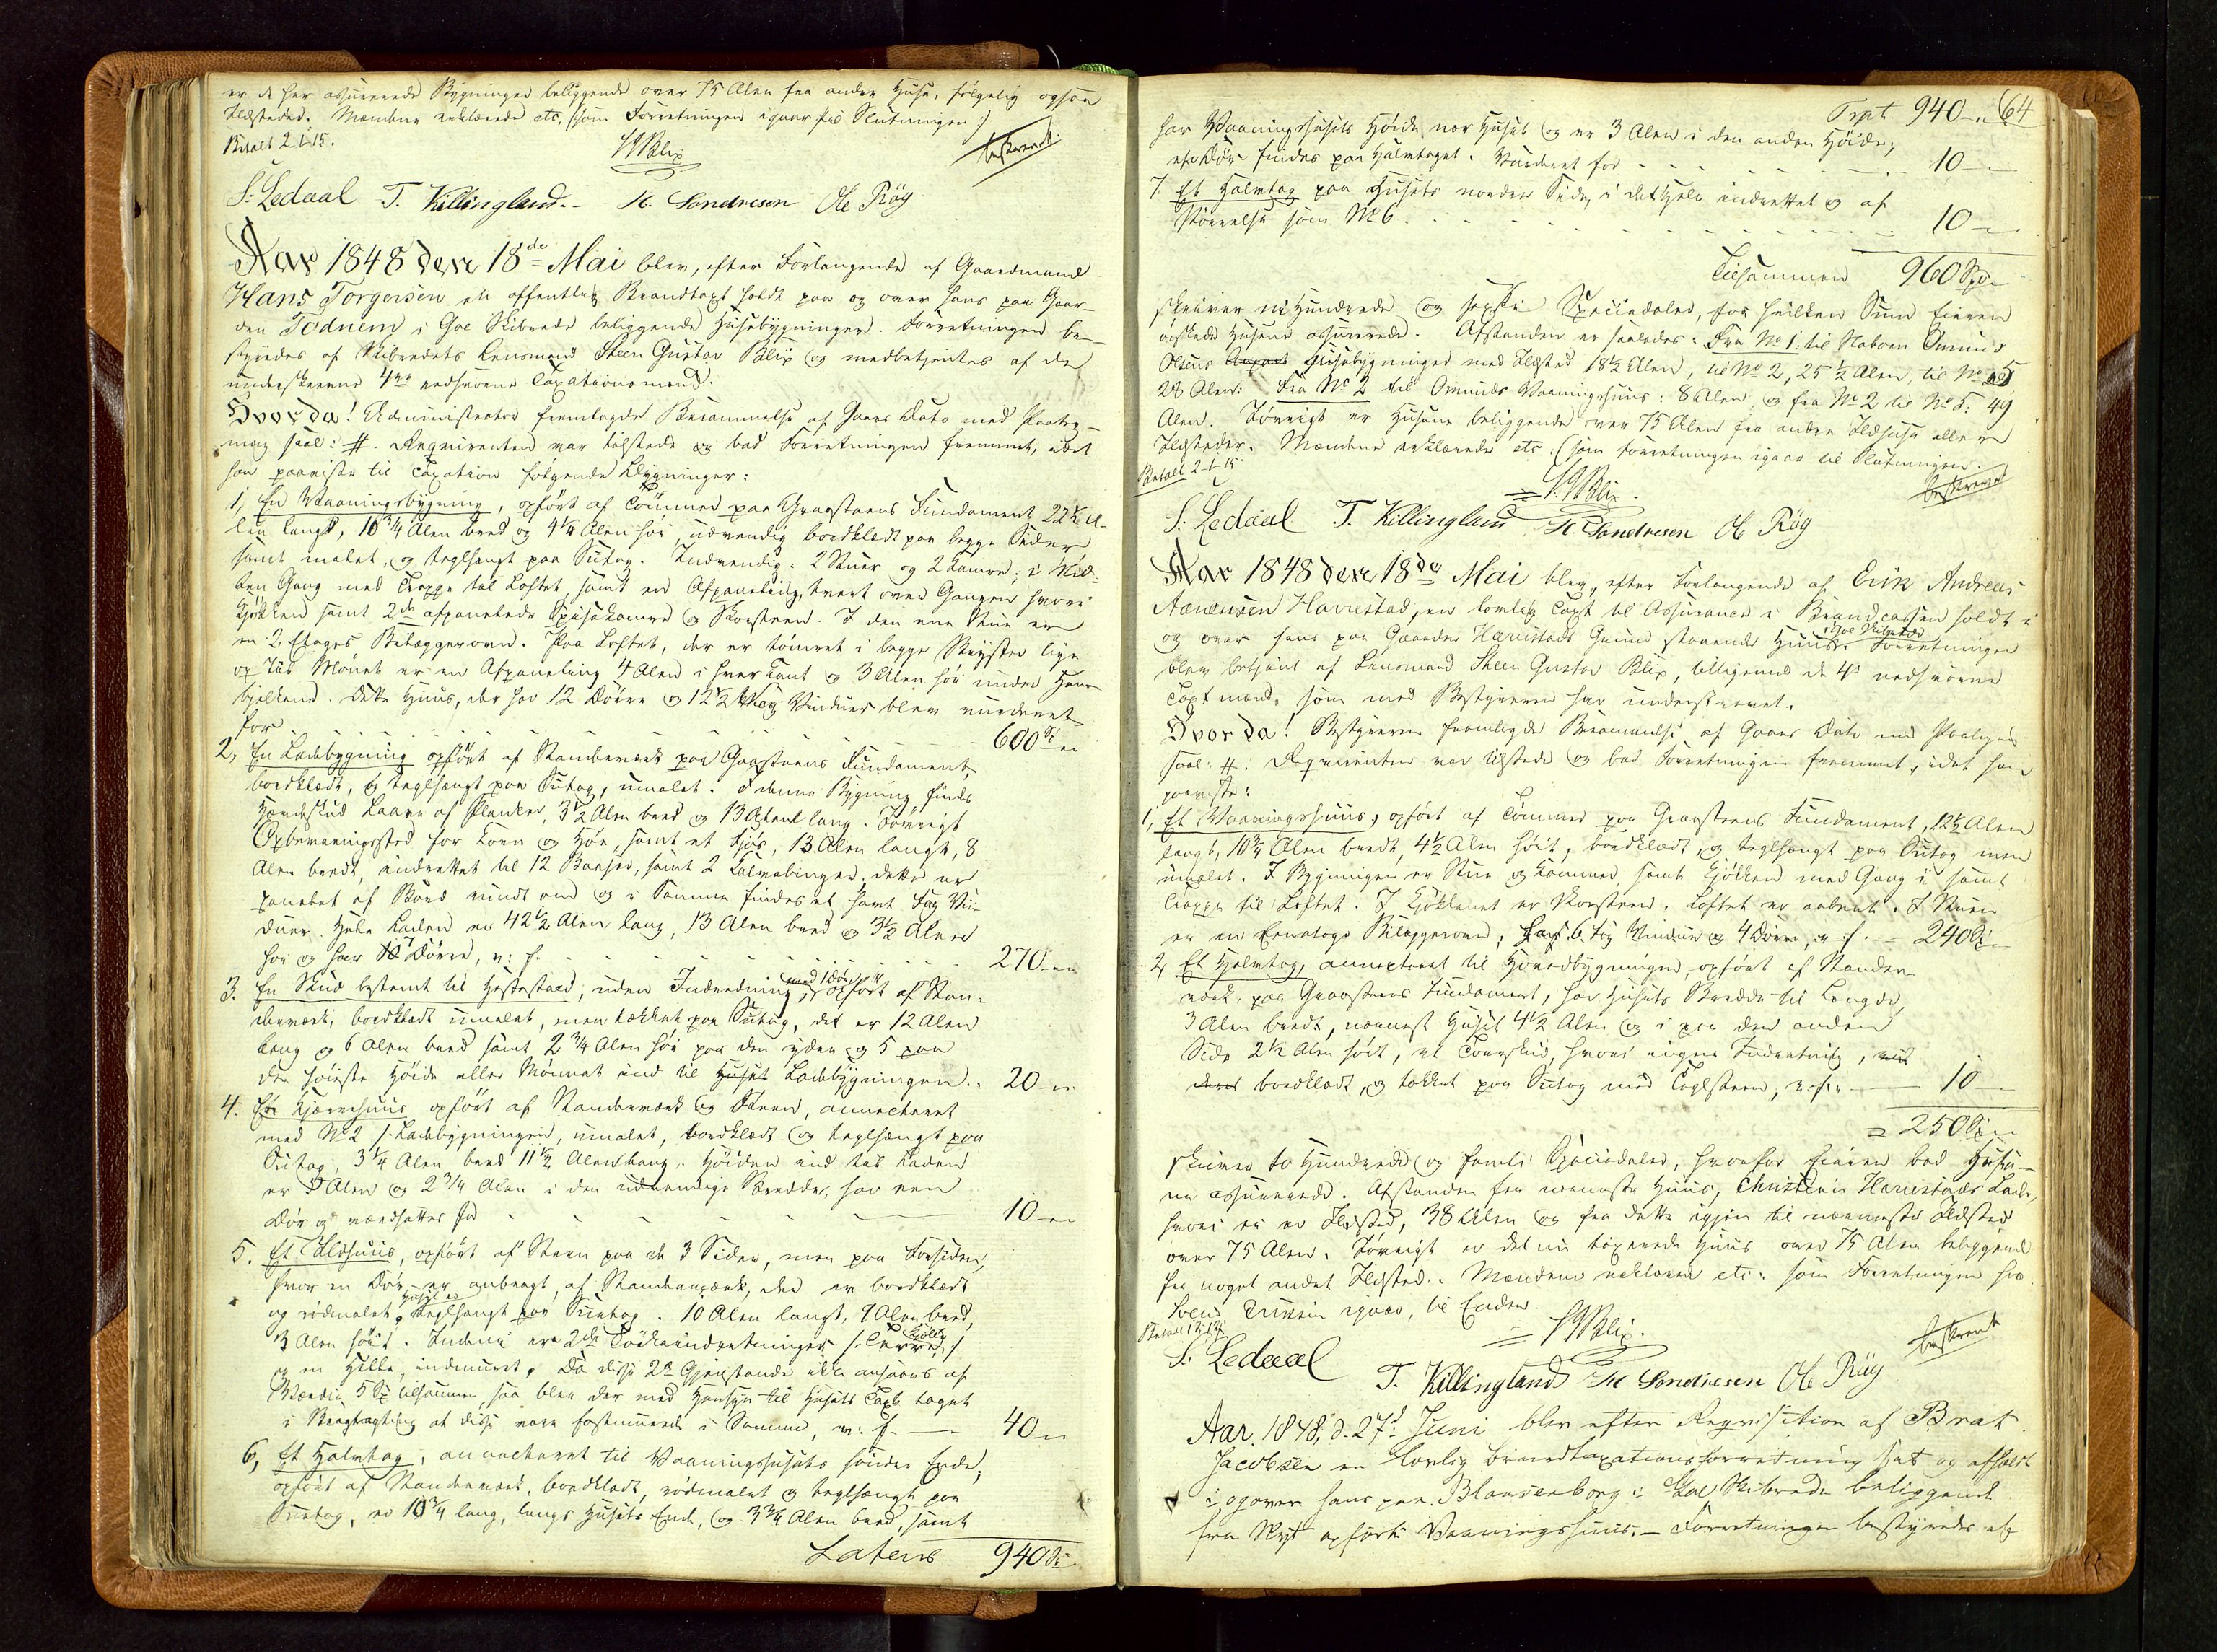 er de her assurerede Bygninger beliggende over 75 Alen fra andre Huse, følgelig ogsaa
Ildsteder. Mændene erklærede etc. (som Forretningen igaar til Slutningen)
Betalt 2-1-15. SGBlix beskrevet
S. Ledaal T. Killingland.- H. Sondresen Ole Røg
Aar 1848 den 18de Mai blev, efter Forlangende af Gaardmand
Hans Torgersen en offentlig Brandtaxt holdt paa og over hans paa Gaar-
den Todnem i Goe Skibrede beliggende Huusebygninger. Forretningen be-
styredes af Skibredets Lensmand Steen Gustav Blix og medbetjentes af de
underskrevne 4re edsvorne Taxationsmænd.
Hvorda! Administrator fremlagde Berammelse af Gaars Dato med Paateg-
ning saal: #. Reqvirenten var tilstede og bad Forretningen fremmet, idet
han paaviste til Taxation følgende Bygninger:
1, En Vaaningsbygning, opført af Tømmer paa Graasteens Fundament 22½ A-
len langt, 10¾ Alen bred og 4¼ Alen høi, udvendig bordklædt paa begge Sider
samt malet, og teglhængt paa Sutag. Indvendig: 2 Stuer og 2 Kamre; i Mid-
ten Gang med Trappe til Loftet, samt en Afpaneling tvert over Gangen hvori
Kjøkken samt 2de afpanelede Spisekamre og Skorsteen. I den ene Stue er
en 2 Etages Bilæggerovn. Paa Loftet, der er tømret i begge Røister lige
op til Mønet er en Afpaneling 4 Alen i hver Kant og 3 Alen høi under Hane-
bjelkene. Dette Huus, der har 12 Dørre og 12½ Fag Vinduer blev vurderet
for 600 Sp
2, En Ladebygning opført af Standerværk paa Graasteens Fundament,
bordklædt, og teglhængt paa Sutag, umalet. I denne Bygning findes
Laave af Planker, 3½ Alen bred og 13 Alen lang. Forøvrigt
Opbevaringssted for Korn og Høe, samt et Fjøs, 13 Alen langt, 8
Alen bredt, indrettet til 12 Baaser, samt 2 Kalvebinger; dette er
panelet af Bord rundt om og i Samme findes et halvt Fag Vin-
duer. Hele Laden er 42½ Alen lang, 13 Alen bred og 3½ Alen
høi og har Dørre, v: f. 270-
3. En Skud bestemt til Hestestald, uden Indredning, med 1 Dør, opført af Stan-
derværk, bordklædt umalet, men tækket paa Sutag, det er 12 Alen
lang og 6 Alen bred samt 2¾ Alen høi paa den ydre og 5 paa
den høieste Høide eller Mønnet ind til Ladebygningen. 20-
4. Et Kjærnehuus opført af Standerværk og Steen, annecteret
med No 2 /: Ladebygningen, umalet, bordklædt og teglhængt paa
Sutag, 3¼ Alen bred 11½ Alen lang. Høiden ind til Laden
er 5 Alen og 2¾ Alen i den udvendige Bredde, har een
Dør og værdsattes for 10-
5. Et Ildhuus, opført af Steen paa de 3 Sider, men paa Forsiden,
hvor en Dør er anbragt, af Standerværk, der er bordklædt
og rødmalet, Huset er teglhængt paa Sutag. 10 Alen langt, 9 Alen bred,
3 Alen høit. Indeni ere 2de Tørkeindretninger /: Tørre /
og en Helle, indmuret. Da disse 2de Gjenstande ikke ansaaes af
Værdie 5 Sp tilsammen, saa blev der med Hensyn til Husets Taxt taget
i Betragtning at disse vare fastmurede i Samme, v: f. 40-
6, Et Halvtag, annecteret til Vaaningshusets søndre Ende,
opført af Standerværk, bordklædt, rødmalet og teglhængt paa
Sutag, er 10¾ lang, langs Husets Ende, og 3¾ Alen bred, samt
Lateris 940 Sp
Trpt. 940- 64
har Vaaningshusets Høide nær Huset og er 3 Alen i den anden Høide;
Dør findes paa Halvtaget. Vurderet for 10-
7. Et Halvtag paa Husets nordre Side, i det Hele indrettet og af
Størrelse som No 6. 10-
Tilsammen 960 Spd
skriver ni Hundrede og sexti Speciedaler, for hvilken Sum Eieren
ønskede Husene assurerede. Afstanden er saaledes: Fra No 1: til Naboen Omund
Olsens Huusebygninger med Ildsted 18½ Alen, til No 2, 25½ Alen, til No 5
28 Alen: Fra No 2 til Omunds Vaaningshuus: 8 Alen, og fra No 2 til No 5: 49
Alen. Forøvrigt er Husene beliggende over 75 Alen fra andre Ildhuse eller
Ildsteder. Mændene erklærede etc: (som Forretningen igaar til Slutningen.
Betalt 2-1-15. SGBlix. beskrevet
S. Ledaal T. Killingland H. Sondresen Ole Røg
Aar 1848 den 18de Mai blev, efter Forlangende af Erik Andreas
Aanensen Harrestad, en lovlig Taxt til Assurance i Brandcassen holdt i
og over hans paa Gaarden Harrestads Grund i Goe Skibrede staaende Huuse. Forretningen
blev betjent af Lensmand Steen Gustav Blix, tilligemed de 4re edsvorne
Taxtmænd, som med Bestyreren har underskrevet.
Hvorda! Bestyreren fremlagde Berammelse af Gaars Dato med Paategn.
saal: #. Reqvirenten var tilstede og bad Forretningen fremmet, idet han
paaviste:
1, Et Vaaningshuus, opført af Tømmer paa Graasteens Fundament, 12½ Alen
langt, 10¾ Alen bredt, 4½ Alen høit, bordklædt, og teglhængt paa Sutag men
umalet. I Bygningen er Stue og Kammer, samt Kjøkken med Gang i samt
Trappe til Loftet. I Kjøkkenet er Skorsteen. Loftet er aabent. I Stuen
er en Eenetages Bilæggerovn, har 6 Fag Vinduer og 4 Dørre, v: f. 240 Sp
2, Et Halvtag, annecteret til Hovedbygningen, opført af Stander-
værk, paa Graasteens Fundament, har Husets Bredde til Længde,
3 Alen bredt, nærmest Huset 4½ Alen og i paa den anden
Side 2½ Alen høit, et Torvskud, hvori ingen Indretning,
bordklædt, og tækket paa Sutag med Taglsteen, v. f. 10-
= 250 Sp
skriver to Hundrede og femti Speciedaler, hvorfor Eieren bad Huse-
ne assurerede. Afstanden fra nærmeste Huus, Christen Harrestads Lade,
hvori ei er Ildsted, 38 Alen og fra dette igjen til nærmeste Ildsted
over 75 Alen. Forøvrigt er det nu taxerede Huus over 75 Alen beliggende
fra noget andet Ildsted. Mændene erklærede etc: som Forretningen hos
igaar, til Enden.
= SGBlix. beskrevet
S. Ledaal T. Killingland H. Sondresen Ole Røg
Aar 1848, d. 27d Juni blev efter Reqvisition af Brat
Jacobsen en lovlig Brandtaxationsforretning sat og afholdt
i og over hans paa Blansenborg i Goe Skibrede beliggende
fra Nyt opførte Vaaningshuus. - Forretningen bestyredes af